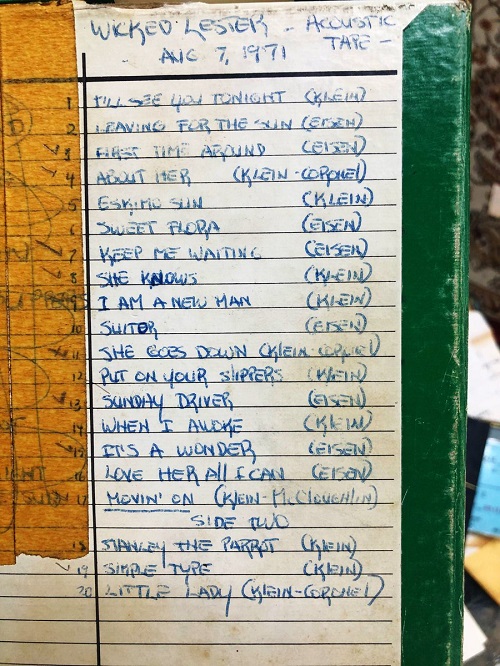 WICKED LESTER - ACOUSTIC
AUG 7, 1971 TAPE -
1 I'LL SEE YOU TONIGHT (KLEIN)
2 LEAVING FOR THE SUN (EISEN)
3 FIRST TIME AROUND (EISEN)
4 ABOUT HER (KLEIN-CORONEL)
5 ESKIMO SUN (KLEIN)
6 SWEET FLORA (EISEN)
7 KEEP ME WAITING (EISEN)
8 SHE KNOWS (KLEIN)
9 I AM A NEW MAN (KLEIN)
10 SUITOR (EISEN)
11 SHE GOES DOWN (KLEIN-CORONEL)
12 PUT ON YOUR SLIPPERS (KLEIN)
13 SUNDAY DRIVER (EISEN)
14 WHEN I AWOKE (KLEIN)
15 IT'S A WONDER (EISEN)
16 LOVE HER All I CAN (EISEN)
17 MOVIN' ON (KLEIN-McCLOUGHLIN)
SIDE TWO
18 STANLEY THE PARROT (KLEIN)
19 SIMPLE TYPE (KLEIN)
20 LITTLE LADY (KLEIN-CORONEL)